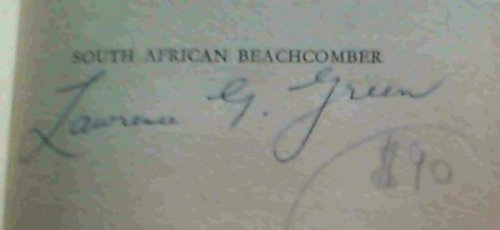 SOUTH AFRICAN BEACHCOMBER
Lawrence G. Green
$90